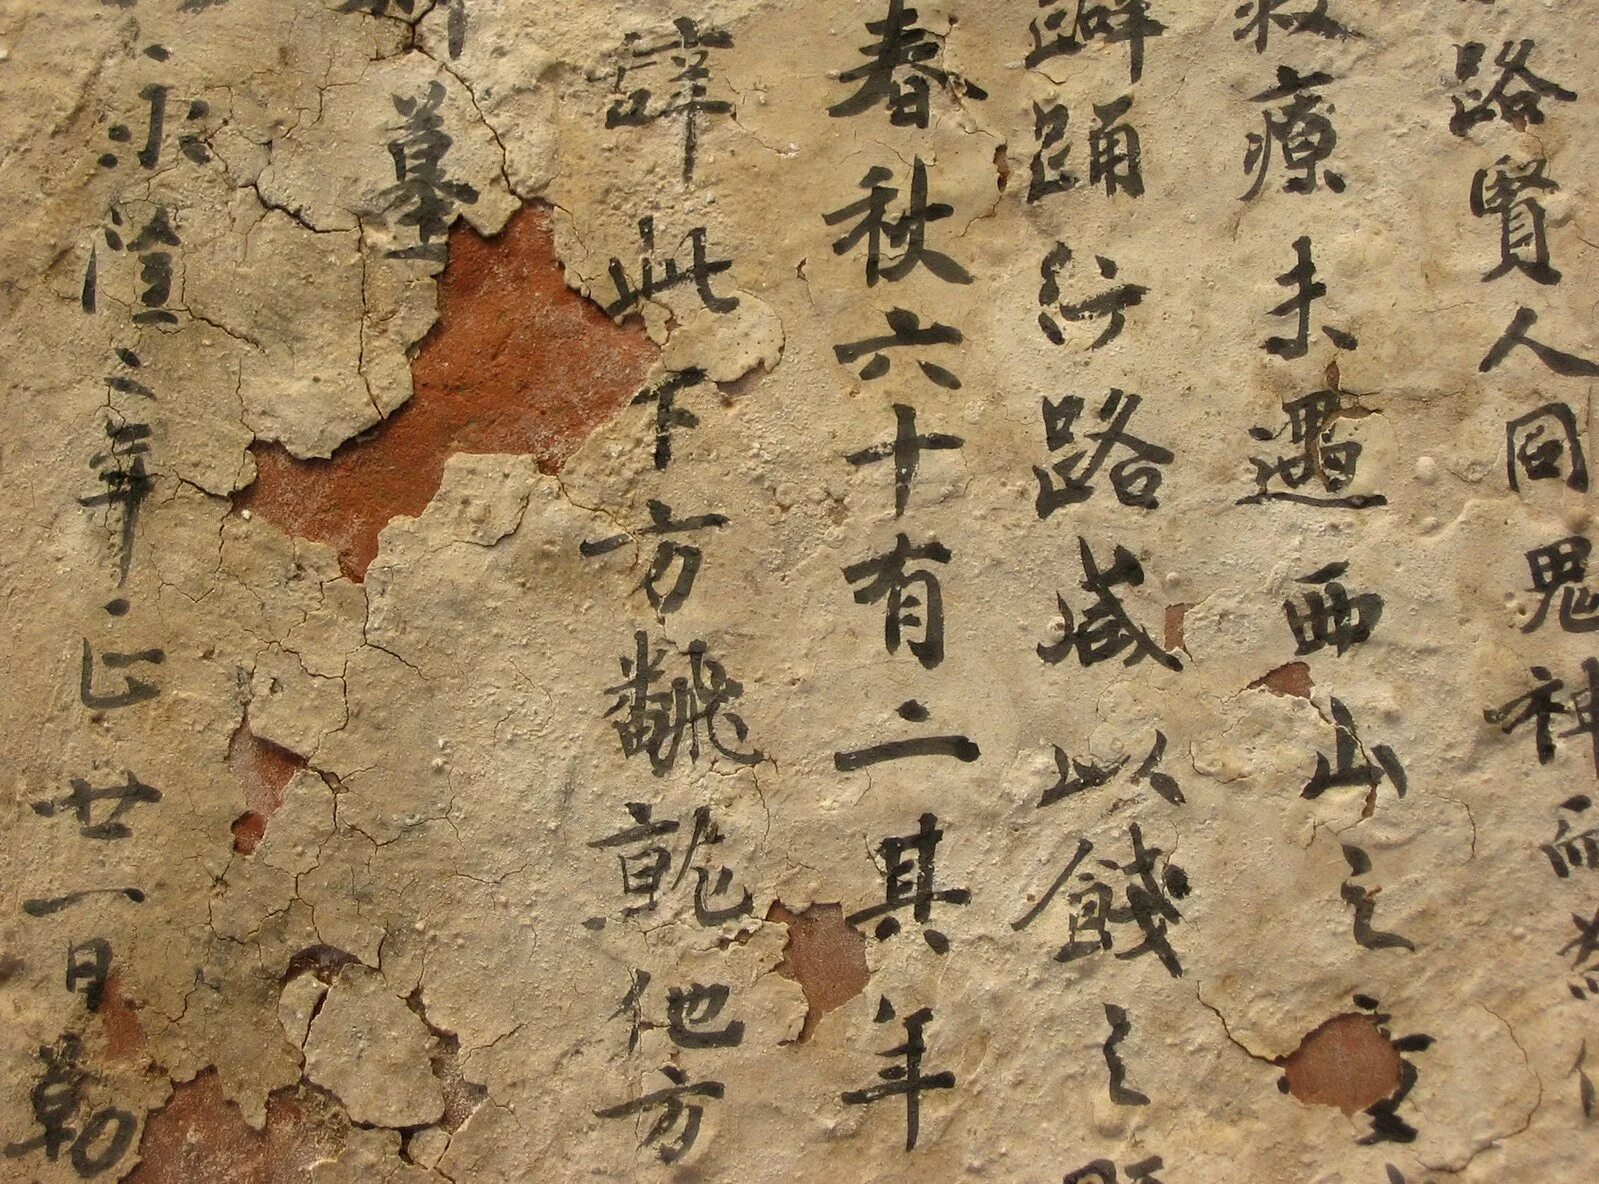 路賢人同鬼神而
救療未遇西山之童
躃踊行路咸以餞之
春秋六十有二其年
辞此下方翻就他方
墓
永隆二年正廿一日勒